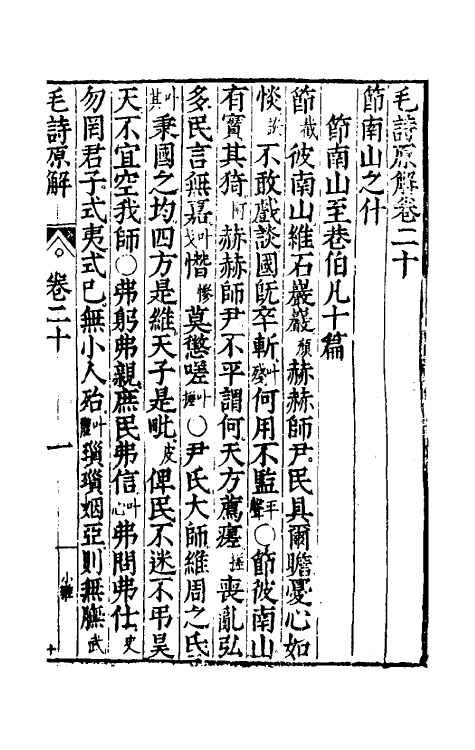 毛詩原解卷二十
節南山之什
節南山至巷伯凡十篇
節截彼南山維石巖巖顏赫赫師尹民具爾瞻憂心如
惔談不敢戲談國旣卒斬叶殘何用不監平聲○節彼南山
有實其猗阿赫赫師尹不平謂何天方薦瘥搓喪亂弘
多民言無嘉叶戈憯慘莫懲嗟叶搓○尹氏大師維周之氐
叶其秉國之均四方是維天子是毗皮俾民不迷不弔昊
天不宜空我師○弗躬弗親庶民弗信叶心弗問弗仕叶史
勿罔君子式夷式已無小人殆叶瑣瑣姻亞則無膴武
毛詩原解
卷二十
一
小雅